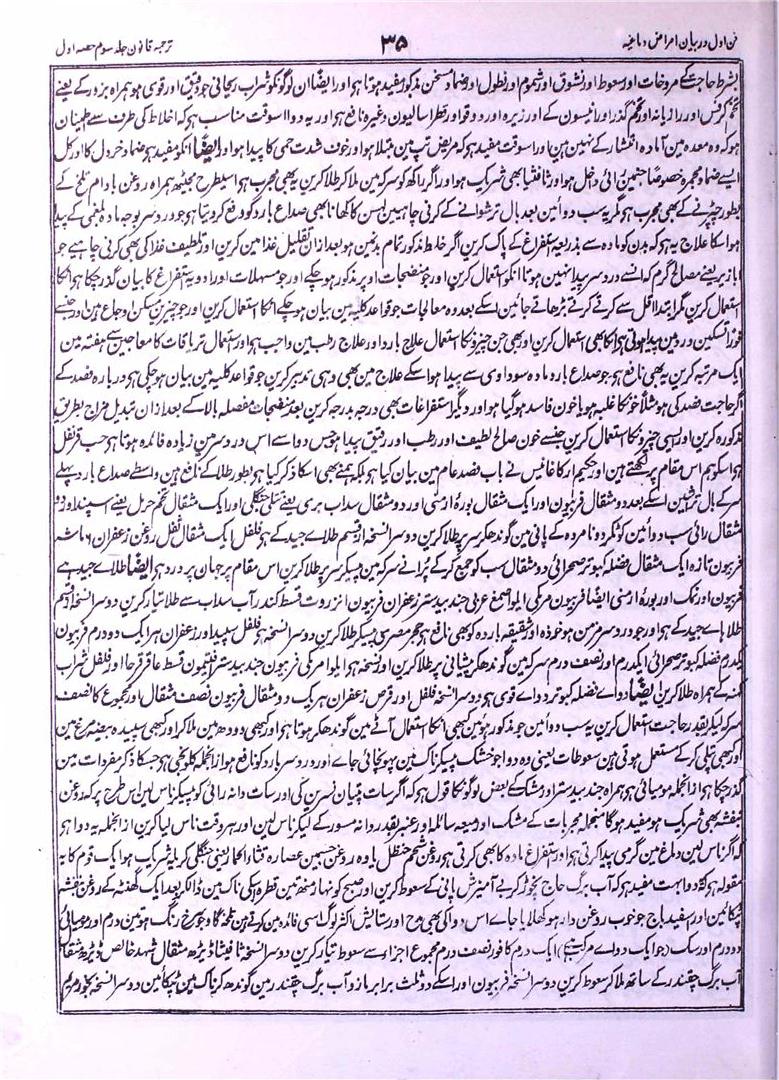 فن اول در بیان امراض دماغیہ ۳۵ ترجمہ قانون جلد سوم حصہ اول
بشرط حاجت کے مروخات اور سعوط اور نشوق اور شموم اور نطول اور ضماد مسخن مذکور مفید ہوتا ہو اور ایضاً ان لوگونکو شراب ریحانی جو رقیق اور قوی ہو ہمراہ بزور کے یعنے
تخم کرفس اور رازیانہ اور تخم گذر اور انیسون کے اور زیرہ اور دوقو اور فطراسالیون وغیرہ نافع ہو اور یہ دوا اسوقت مناسب ہو کہ اخلاط کی طرف سے اطمینان
ہو کہ وہ معدہ مین آمادہ انتشار کے نہین ہین اور اسوقت مفید ہو کہ مریض تپ مین مبتلا ہو اور خوف شدت حمی کا پیدا ہو اور ایضاً انکو مفید ہو ضماد خردل کا اور کل
ایسے ضماد محمرہ خصوصاً جنمین رائی داخل ہو اور ثافسیا بھی شریک ہو اور اگر راکھ کو سرکہ مین ملا کر طلا کرین یہ بھی مجرب ہو اسیطرح ہمراہ روغن بادام تلخ کے
بطور چپڑنے کے بھی مجرب ہو مگر یہ سب دوائین بعد بال ترشوانے کے کرنی چاہیین لہسن کا کھانا بھی صداع بارد کو دفع کر دیتا ہو جو درد سر بوجہ مادہ بلغمی کے پیدا
ہو اسکا علاج یہ ہو کہ بدن کو مادہ سے بذریعہ استفراغ کے پاک کرین اگر خلط مذکور تمام بدن مین ہو بعد ازان تقلیل غذا مین کرین اور تلطیف غذا کی بھی کرنی چاہیے جو
ابازیر یعنے مصالح گرم کہ انسے درد سر پیدا نہین ہوتا انکو استعمال کرین اور جو منضجات اوپر مذکور ہو چکے اور جو مسہلات اور ادویہ استفراغ کا بیان گذر چکا ہو انکا
استعمال کرین مگر ابتدا اقل سے کرتے کرتے بڑھاتے جائین اسکے بعد وہ معالجات جو قواعد کلیہ مین بیان ہو چکے انکا استعمال کرین اور جو چیزین مسکن اوجاع ہین اور جنسے
فوراً تسکین درد مین پیدا ہوتی ہو انکا بھی استعمال کرین اور بھی جن چیزونکا استعمال علاج بارد اور علاج رطب مین واجب ہو اور استعمال تریاقات کا معاجین سے ہفتہ مین
ایک مرتبہ کرین یہ بھی نافع ہو۔ جو صداع بارد مادہ سوداوی سے پیدا ہو اسکے علاج مین بھی وہی تدبیر کرین جو قواعد کلیہ مین بیان ہو چکی ہو در بارہ فصد کے
اگر حاجت فصد کی ہو مثلاً خون کا غلبہ ہو یا خون فاسد ہو گیا ہو اور دیگر استفراغات بھی درجہ بدرجہ کرین بعد منضجات مفصلہ بالا کے بعد ازان تبدیل مزاج بطریق
مذکورہ کرین اور ایسی چیزونکا استعمال کرین جنسے خون صالح لطیف اور رطب اور رقیق پیدا ہو جس دوا سے اس درد سر مین زیادہ فائدہ ہوتا ہو حب قرنفل
ہو اسکو ہم اس مقام پر لکھتے ہین اور حکیم ارکاغانیس نے باب فصد عام مین بیان کیا ہو بلکہ ہمنے بھی اسکا ذکر کیا ہو بطور طلا کے نافع ہین واسطے صداع بارد پہلے
سر کے بال تراشین اسکے بعد دو مثقال فربیون اور ایک مثقال بورۂ ارمنی اور دو مثقال سداب بری یعنے تتلی جنگلی اور ایک مثقال تخم حرمل یعنے اسپند اور دو
مثقال رائی سب دوائین کوٹکر دونا مروہ کے پانی مین گوندھ کر سر پر طلا کرین دوسرا نسخہ از قسم طلاے جید کے ہو فلفل ایک مثقال ثفل روغن زعفران ۶ ماشہ
فربیون تازہ ایک مثقال فضلہ کبوتر صحرائی دو مثقال سب کو جمع کر کے پرانے سرکہ مین پیسکر سر پر طلا کرین اس مقام پر جہان پر درد ہو ایضاً طلاے جید ہے
فربیون اور نمک اور بورۂ ارمنی ایضاً فربیون مرمکی ایلوا صمغ عربی جند بیدستر زعفران فربیون انزروت قسط کندر آب سداب سے طلا تیار کرین دوسرا نسخہ از قسم
طلا ہاے جید کے ہو اور جو درد سر مزمن ہو خوذہ اور شقیقہ باردہ کو بھی نافع ہو حجر مصری پیسکر طلا کرین دوسرا نسخہ ہو فلفل سپید اور زعفران ہر ایک دو درم فربیون
یکدرم فضلہ کبوتر صحرائی ایکدرم اور نصف درم سرکہ مین گوندھکر پیشانی پر طلا کرین اور نسخہ ہو ایلوا مرمکی فربیون جند بیدستر افتیمون قسط عاقرقرحا اور فلفل شراب
کہنہ کے ہمراہ طلا کرین ایضاً دواے فضلہ کبوتر دواے قوی ہو دوسرا نسخہ فلفل اور قرص زعفران ہر یک دو مثقال فربیون نصف مثقال اور مجموع کا نصف
سرکہ لیکر بقدر حاجت استعمال کرین یہ سب دوائین جو مذکور ہوئین کبھی انکا استعمال آٹے مین گوندھکر ہوتا ہو اور کبھی دودھ مین ملا کر اور کبھی سپیدہ بیضہ مرغ مین
اور کبھی پتلی کر کے مستعمل ہوتی ہین سعوطات یعنی وہ دوا جو خشک پیسکر ناک مین پہونچائی جاے اور درد سر بارد کو نافع ہو از انجملہ کلونجی ہو جسکا ذکر مفردات مین
گذر چکا ہو از انجملہ مومیائی ہو ہمراہ جند بیدستر اور مشک کے بعض لوگونکا قول ہو کہ اگر سات پتیان نسرین کی اور سات دانہ رائی کو پیسکر ناس لین اس طرح پر کہ روغن
بنفشہ بھی شریک ہو مفید ہو گا منجملہ مجربات کے مشک اور میعہ سائلہ اور عنبر بقدر دانہ مسور کے لیکر ناس لین اور ہر وقت ناس لیا کرین از انجملہ یہ دوا ہو
کہ اگر ناس لین دماغ مین گرمی پیدا کرتی ہو اور استفراغ مادہ کا بھی کرتی ہو روغن شحم حنظل یا وہ روغن جسمین عصارہ قثاء الحمار یعنی جنگلی کریلہ شریک ہو ایک قوم کا یہ
مقولہ ہو کہ یہ دوا بہت مفید ہو کہ آب برگ حاج نچوڑ کر بے آمیزش پانی کے سعوط کرین اور صبح کو نہار منھ تین قطرہ ہی ناک مین ڈالکر بعد ایک گھنٹہ کے روغن بنفشہ
ٹپکائین اور اسفیدباج جو خوب روغن دار ہو کھلایا جاے اس دوا کی بھی مدح اور ستایش اکثر لوگ اسی فائدہ مین کرتے ہین
دو درم اور سک (جو ایک دواے مرکب ہے) ایک درم کافور نصف درم مجموع اجزاء سے سعوط تیار کرین دوسرا نسخہ ثافسیا ڈیڑھ مثقال شہد خالص ڈیڑھ مثقال
آب برگ چقندر کے ساتھ ملا کر سعوط کرین دوسرا نسخہ فربیون اور اسکے دو ثلث برابر مازو آب برگ چقندر مین گوندھ کر ناک مین ٹپکائین دوسرا نسخہ بخور مریم